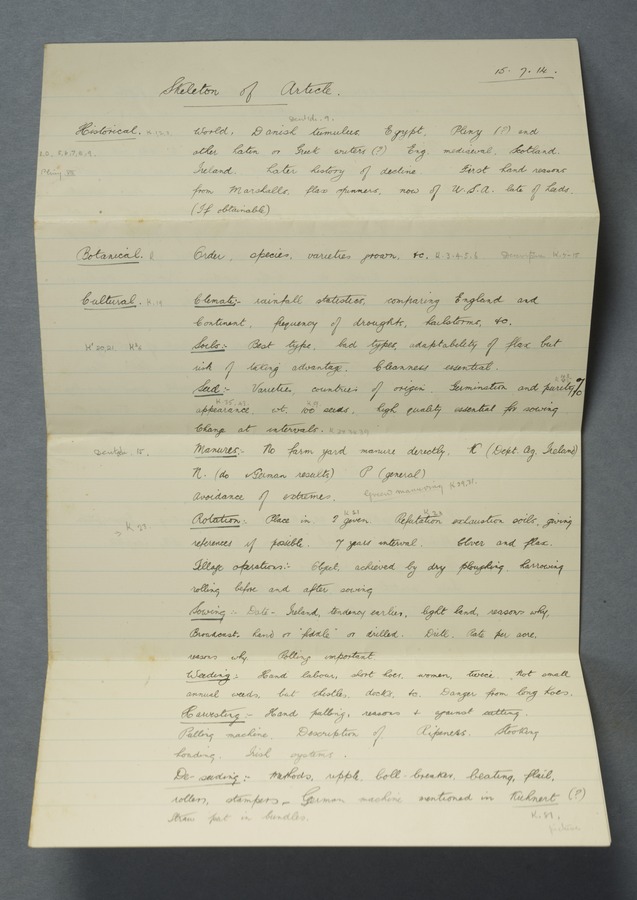 15. 7. 14.
Skeleton of Article.
Historical. World, Danish tumulus, Egypt, Pliny (?) and
other Latin or Greek writers (?) Eng. mediæval, Scotland.
Pliny XIX Ireland. Later history of decline. First hand reasons
from Marshalls, flax spinners, now of U.S.A. late of Leeds.
(If obtainable)
Botanical. Order, species, varieties grown, &c. K-3-4-5-6
Cultural. K.19 Climate:- rainfall statistics, comparing England and
Continent, frequency of droughts, hailstorms, &c.
Soils:- Best type, bad types, adaptability of flax but
risk of taking advantage. Cleanness essential.
Seed:- Varieties, countries of origin. Germination and purity %
appearance, wt. 100 seeds. high quality essential for sowing
Change at intervals.
Manures:- No farm yard manure directly. K (Dept. Ag. Ireland)
N. (do & German results) P (general)
Avoidance of extremes. Green manuring K.29,31.
K. 23. Rotation:- Place in. 2 given. Reputation exhaustion soils, giving
references if possible. 7 years interval. Clover and flax.
Tillage operations:- Object, achieved by dry ploughing, harrowing
rolling before and after sowing
Sowing:- Date - Ireland, tendency earlier, light land, reasons why.
Broadcast, hand or "fiddle" or drilled. Drill. Rate per acre.
reasons why. Rolling important
Weeding:- Hand labour, short hoes, women, twice. Not small
annual weeds, but thistles, docks, &c. Danger from long hoes.
Harvesting:- Hand pulling, reasons & against cutting.
Pulling machine. Description of Ripeness. Stooking
loading. Irish systems.
De-seeding:- Methods, ripple, boll-breaker, beating, flail,
rollers, stampers - German machine mentioned in Kuhnert (?)
Straw put in bundles. K. 81.
picture